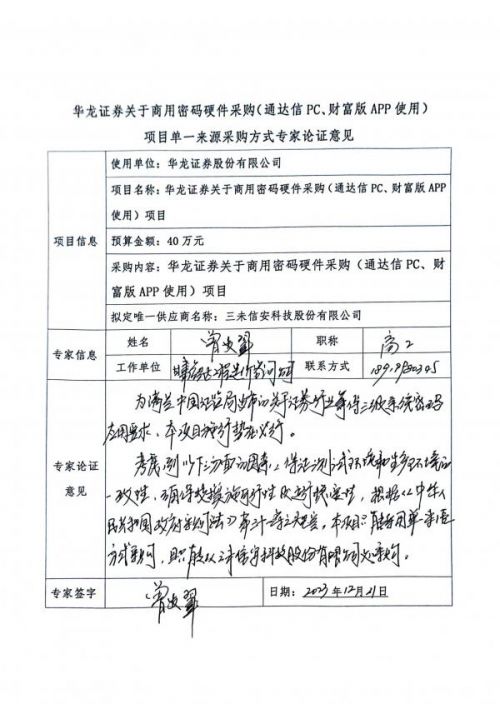 华龙证券关于商用密码硬件采购（通达信 PC、财富版 APP 使用）
项目单一来源采购方式专家论证意见
项目信息
使用单位：华龙证券股份有限公司
项目名称：华龙证券关于商用密码硬件采购（通达信 PC、财富版 APP
使用）项目
预算金额：40 万元
采购内容：华龙证券关于商用密码硬件采购（通达信 PC、财
富版 APP 使用）项目
拟定唯一供应商名称：三未信安科技股份有限公司
专家信息
姓名
职称
高工
工作单位
联系方式
专家论证
意见
为满足中国证监局出布的关于证券行业等保三级系统密码
应用要求，本项目势在必行。
考虑到以下方面的因素：保证测试环境和生产环境的
一致性，确保实施可行性及运行稳定性，根据《中华人
民共和国政府采购法》第三十一条之规定，本项目只能采用单一来源
方式采购，且只能从三未信安科技股份有限公司处采购。
专家签字
日期：2023年12月21日